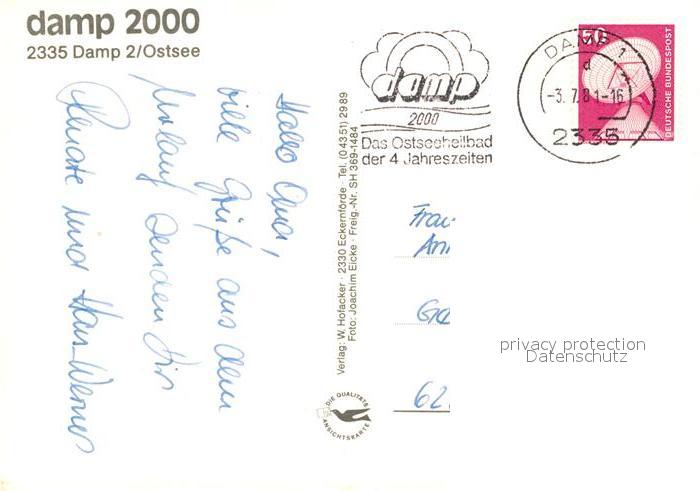 damp 2000
2335 Damp 2/Ostsee
Hallo Omi,
viele Grüße aus dem
Urlaub senden Dir
Renate und Hans-Werner
Verlag: W. Hofacker · 2330 Eckernförde · Tel. (0 43 51) 29 89
Foto: Joachim Eicke · Freig.-Nr. SH 369-1484
DIE QUALITÄTS
ANSICHTSKARTE
damp
2000
Das Ostseeheilbad
der 4 Jahreszeiten
DAMP 1
d
-3.7.81-16
2335
50
DEUTSCHE BUNDESPOST
Frau
An
62
privacy protection
Datenschutz